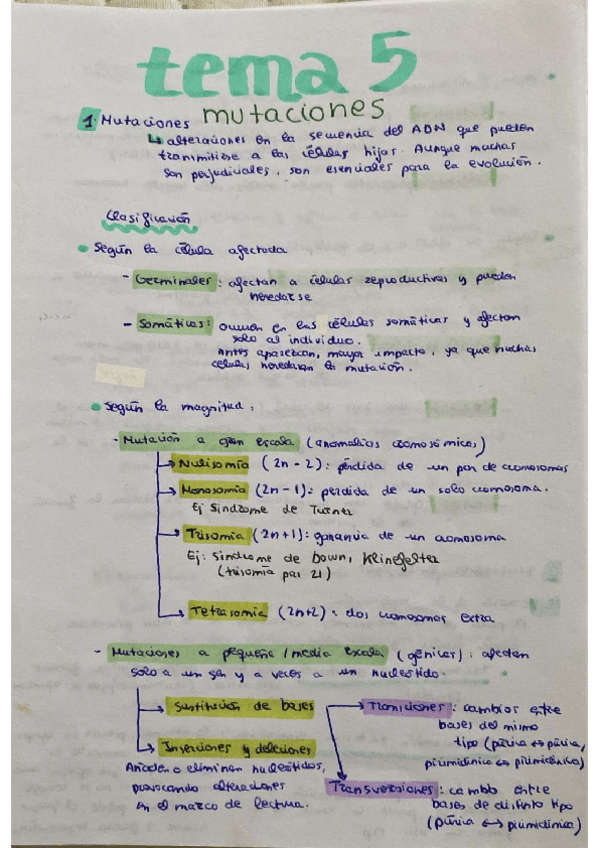 tema 5
mutaciones
1. Mutaciones
↳ alteraciones en la secuencia del ADN que pueden
transmitirse a las células hijas. Aunque muchas
son perjudiciales, son esenciales para la evolución.
Clasificación
• Según la célula afectada
- Germinales: afectan a células reproductivas y pueden
heredarse
- Somáticas: ocurren en las células somáticas y afectan
solo al individuo.
Antes aparezcan, mayor impacto, ya que muchas
células heredarán la mutación.
• Según la magnitud:
- Mutación a gran escala (anomalías cromosómicas)
→ Nulisomía (2n-2): pérdida de un par de cromosomas
→ Monosomía (2n-1): pérdida de un solo cromosoma.
Ej Síndrome de Turner
→ Trisomía (2n+1): ganancia de un cromosoma
Ej: Síndrome de Down, Klinefelter
(trisomía par 21)
→ Tetrasomía (2n+2): dos cromosomas extra
- Mutaciones a pequeña/media escala (génicas): afectan
solo a un gen y a veces a un nucleótido.
→ Sustitución de bases
→ Inserciones y deleciones
Añaden o eliminan nucleótidos,
provocando alteraciones
en el marco de lectura.
→ Transiciones: cambios entre
bases del mismo
tipo (púrica ↔ púrica,
pirimidínica ↔ pirimidínica)
→ Transversiones: cambio entre
bases de distinto tipo
(púrica ↔ pirimidínica)